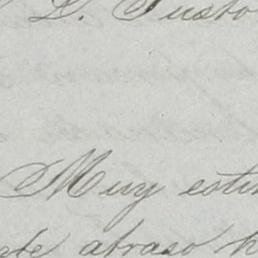 D. Justo
Muy esti
te atraso h